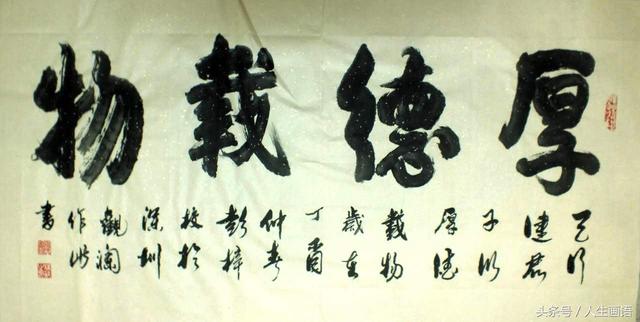 厚德載物
天行
健君
子以
厚德
載物
歲在
丁酉
仲春
彭梓
校於
深圳
觀瀾
作此
書
头条号/人生画语